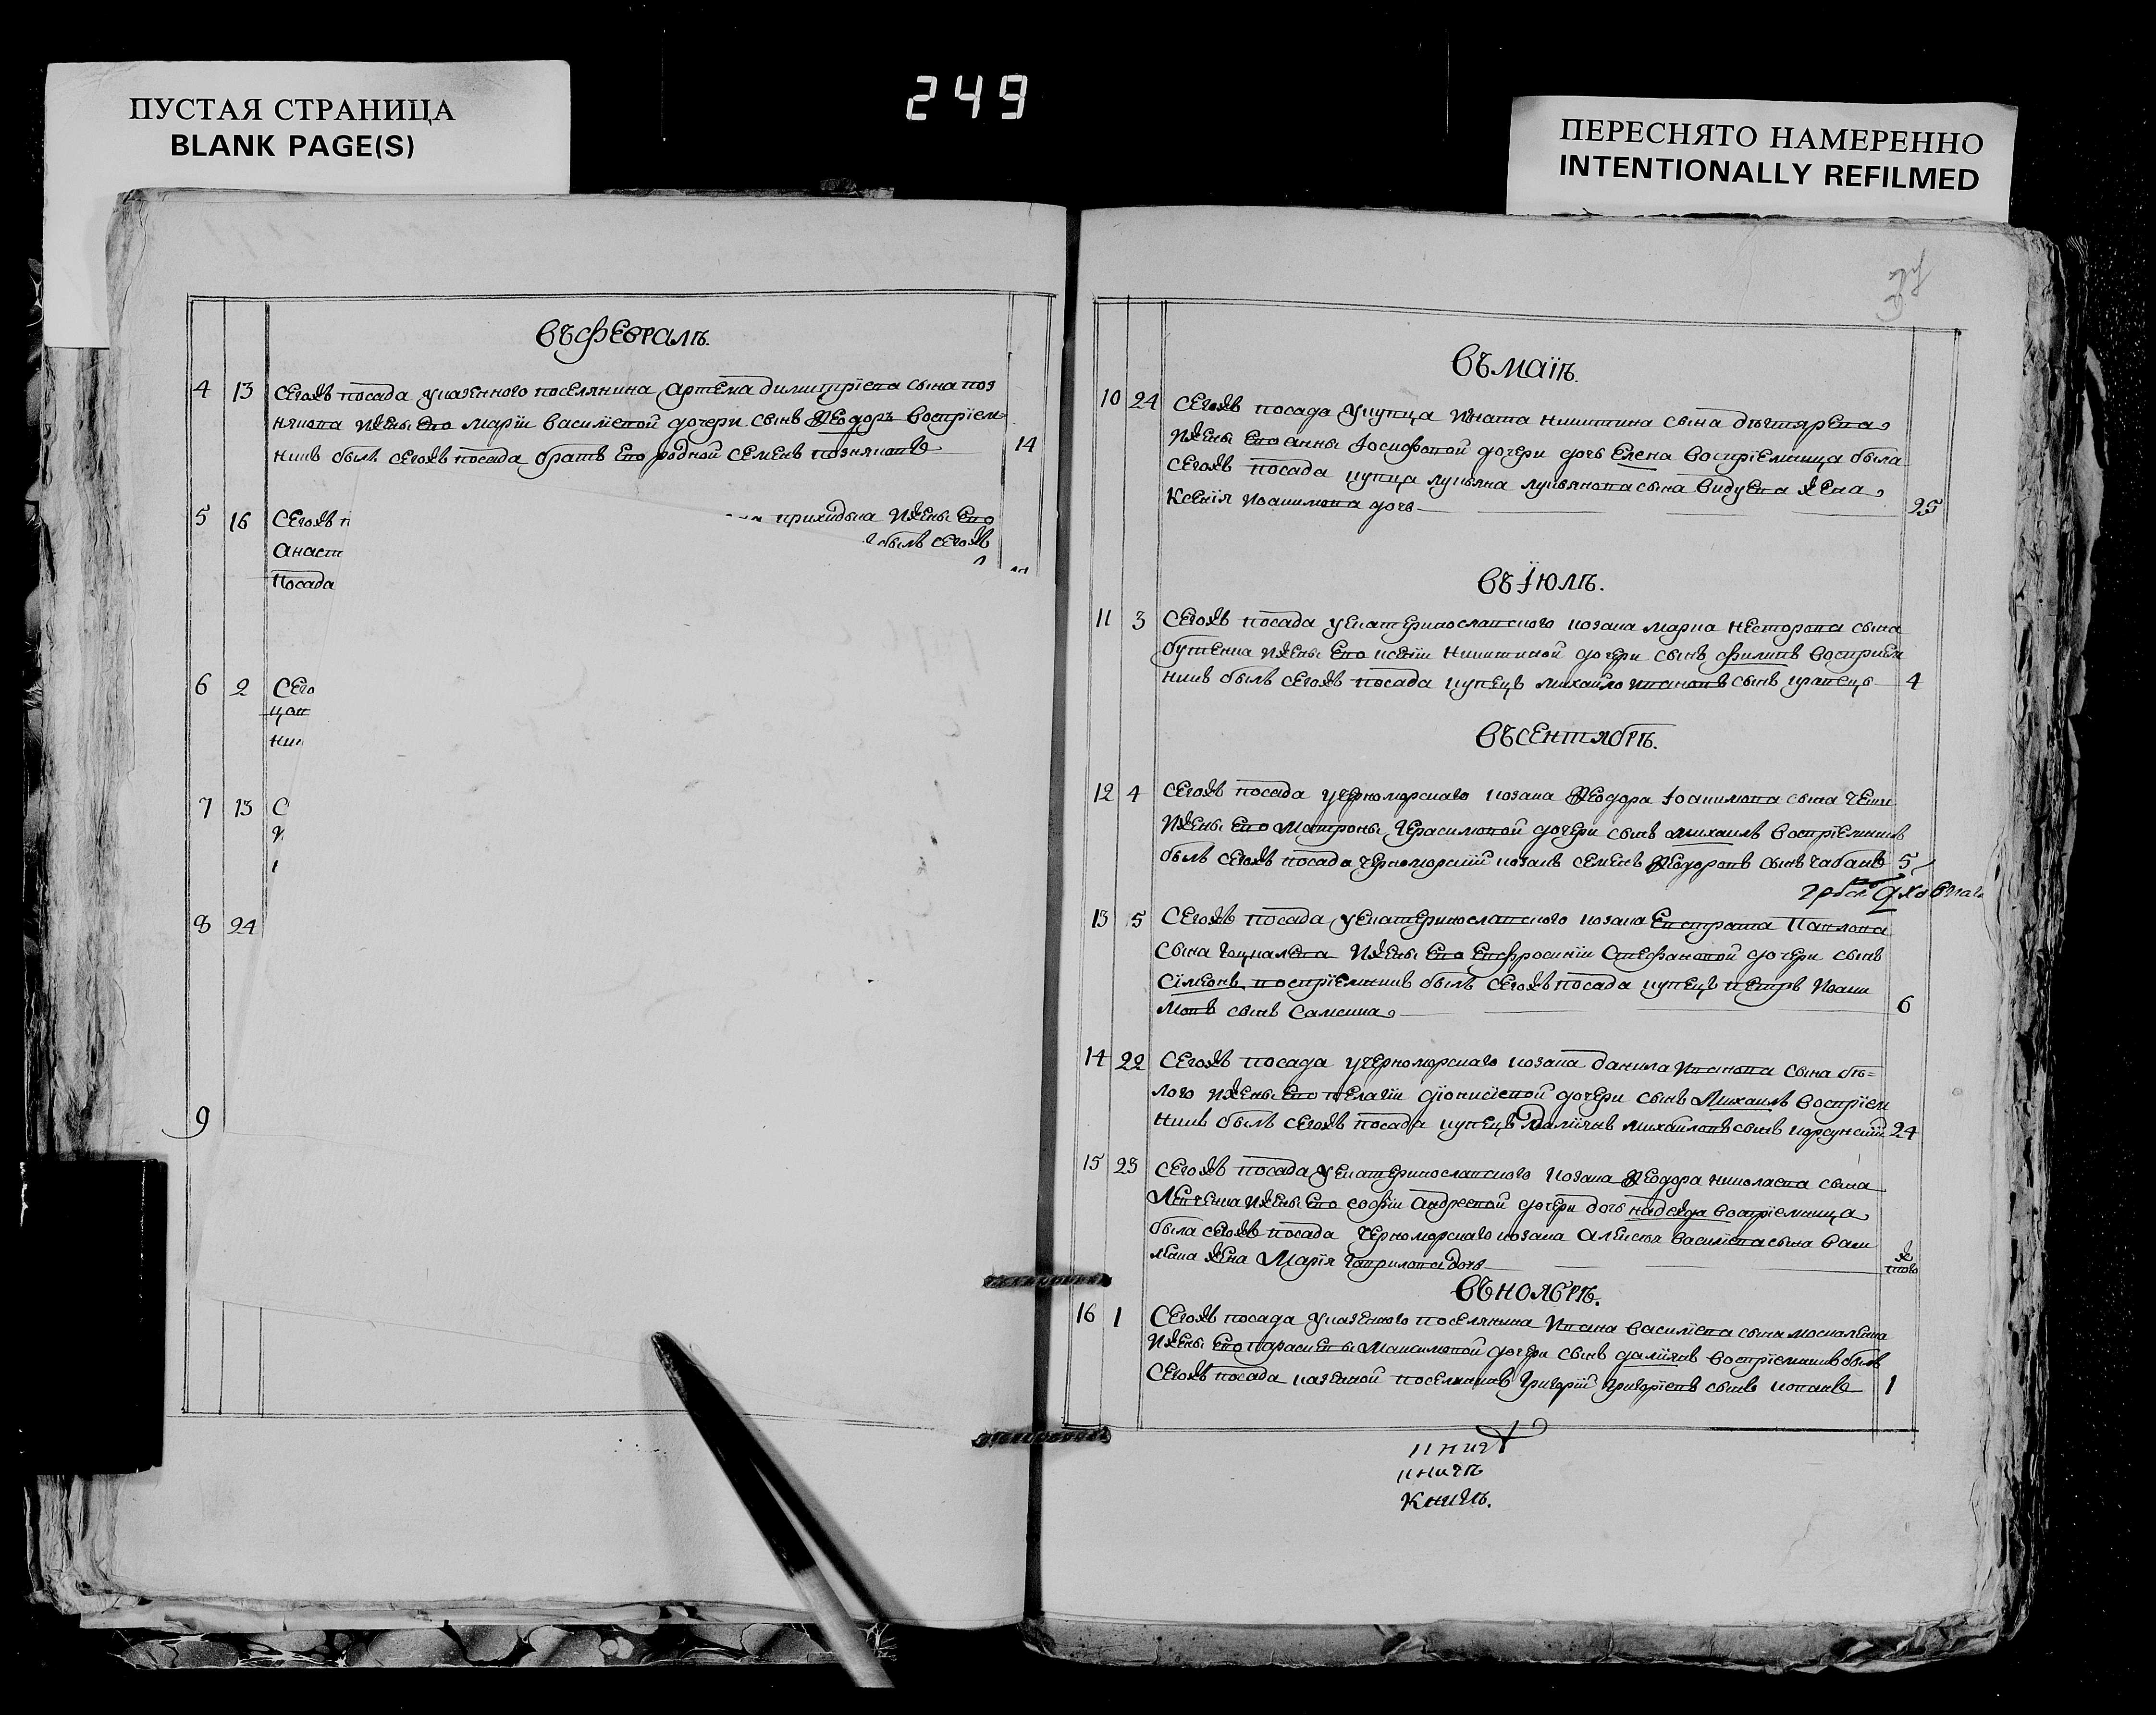 ПУСТАЯ СТРАНИЦА
BLANK PAGE(S)
249
ПЕРЕСНЯТО НАМЕРЕННО
INTENTIONALLY REFILMED
въ февралѣ.
4 13 Сегожъ посада у казенного поселянина Артема Димитрїева сына поз
някова и жены его Марїи Василїевой дочери сынъ Ѳеодоръ воспрїем
никъ былъ сегожъ посада братъ его родной Семенъ позняковъ 14
5 16 Сегожъ п приходька и жены его
Анаст былъ сегожъ
посада
6 2 Сего
цов
ник
7 13 С
и
8 24
9
въ маїѣ.
10 24 Сегожъ посада у купца Игната Никитина сына дѣгтярева
и жены его Анны Іосифовой дочери дочь Елена воспрїемница была
сегожъ посада купца Лукьяна Лукьянова сына видуева жена
Ксенїя Иоакимова дочь 25
въ Їюлѣ.
11 3 Сегожъ посада у екатеринославского козака Марка Несторова сына
бутенка и жены его Ксенїи Никитиной дочери сынъ Филипъ восприем
никъ былъ сегожъ посада купецъ Михайло Ивановъ сынъ кравецъ 4
въ сентябрѣ.
12 4 Сегожъ посада у черноморскаго козака Ѳеодора Іоакимова сына
и жены его Матроны Герасимовой дочери сынъ Михаилъ воспрїемникъ
былъ сегожъ посада черноморскїй козакъ Семенъ Ѳеодоровъ сынъ чабанъ 5
13 5 Сегожъ посада у екатеринославского козака Евстрата Павлова
сына гоцкалева и жены его Евфросинїи Стефановой дочери сынъ
Сїмеонъ, воспрїемникъ былъ сегожъ посада купецъ Петръ Иоаки
мовъ сынъ Самсика 6
14 22 Сегожъ посада у черноморскаго козака Данила Иванова сына бѣ=
лого и жены его Пелагїи Дїонисїевой дочери сынъ Михаилъ воспрїем
никъ былъ сегожъ посада купецъ Дамїянъ Михайловъ сынъ корсунскїй 24
15 23 Сегожъ посада у екатеринославского козака Ѳеодора Николаева сына
Левченка и жены его Софїи Андреевой дочери дочь Надежда воспрїемница
была сегожъ посада черноморскаго козака Алексѣя Василїева сына вак
лена жена Марїя Гаврилова дочь тогож
въ ноябрѣ.
16 1 Сегожъ посада у казенного поселянина Ивана Василїева сына москаленка
и жены его Параскевы Максимовой дочери сынъ Дамїянъ воспрїемникъ былъ
сегожъ посада казенной поселянинъ Григорїй Григорїевъ сынъ копанъ 1
книгѣ
Книгѣ.